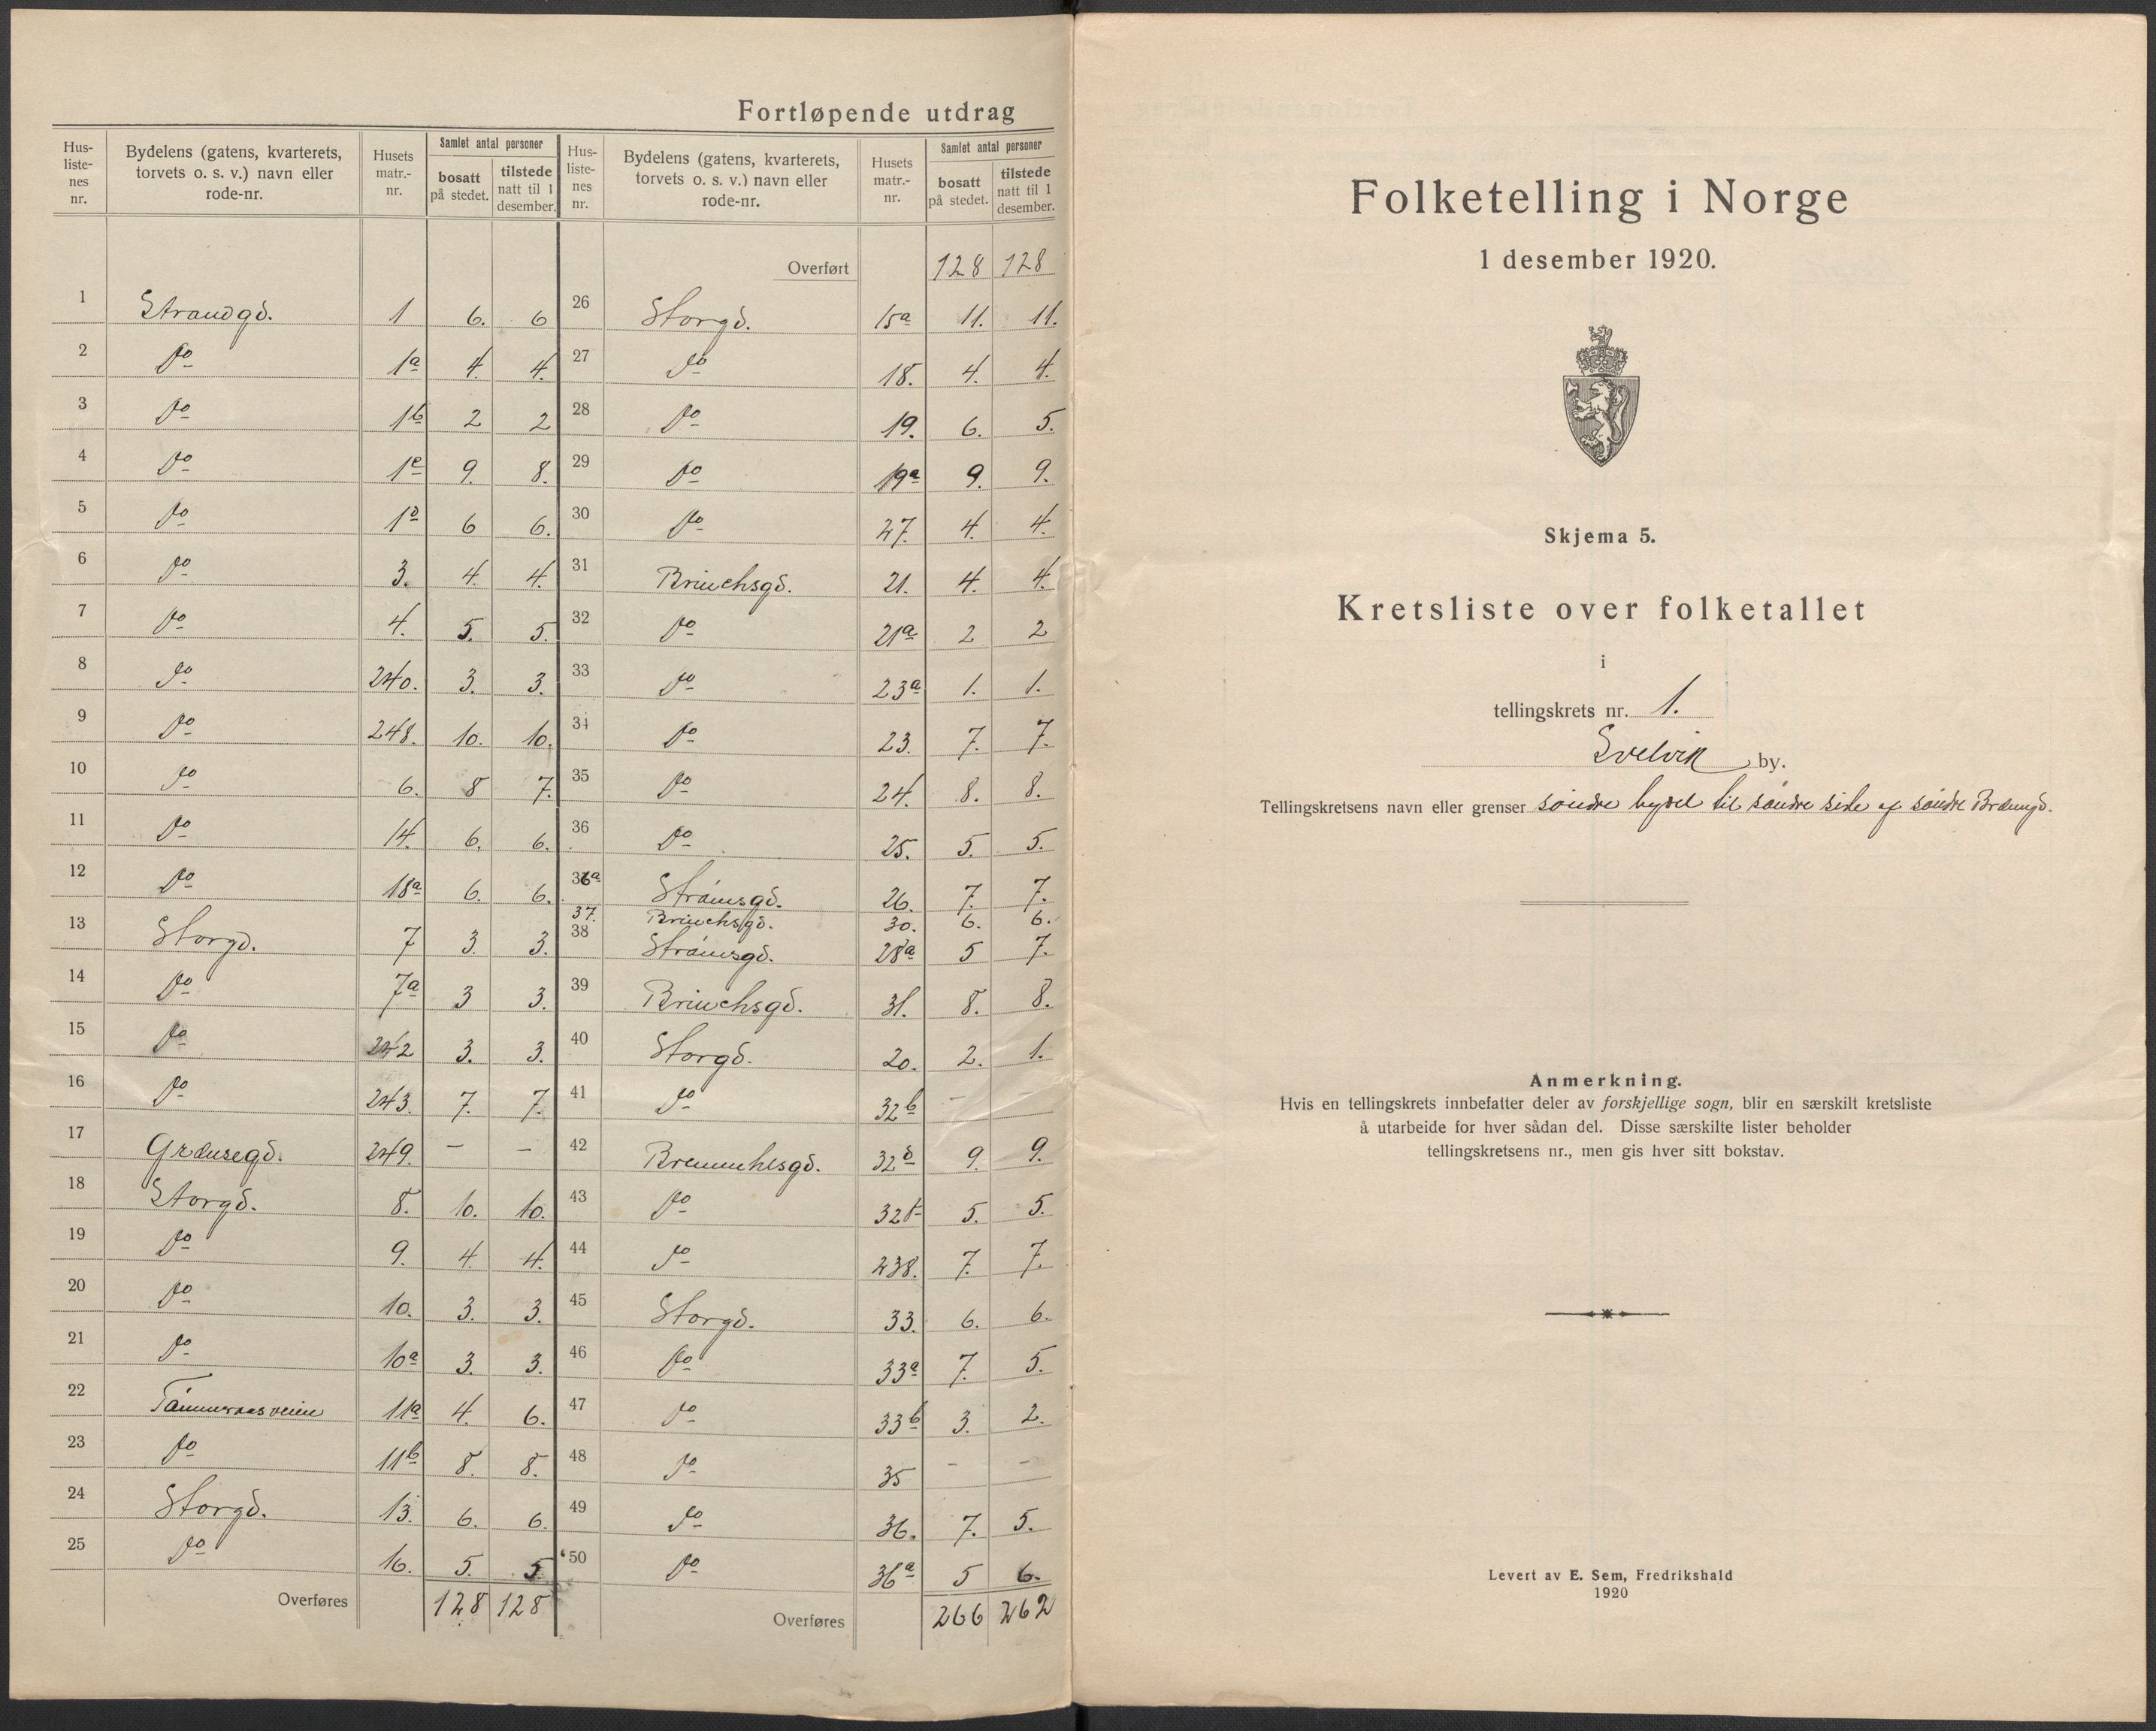 Fortløpende utdrag
Hus-
liste-
nes
nr.
Bydelens (gatens, kvarterets,
torvets o. s. v.) navn eller
rode-nr.
Husets
matr.-
nr.
Samlet antal personer
bosatt
på stedet.
tilstede
natt til 1
desember.
1 Strandgd. 1 6. 6
2 do 1a 4 4.
3 do 1b 2 2
4 do 1c 9. 8.
5 do 1d 6 6.
6 do 3. 4. 4.
7 do 4. 5. 5.
8 do 240. 3. 3.
9 do 248. 10. 10.
10 do 6. 8 7.
11 do 14. 6. 6.
12 do 18a 6. 6.
13 Storgd. 7 3. 3.
14 do 7a 3 3.
15 do 242 3. 3.
16 do 243. 7. 7.
17 Grænsegd. 249. – –
18 Storgd. 8. 10. 10.
19 do 9. 4. 4.
20 do 10. 3. 3.
21 do 10a 3. 3.
22 11a 4. 6.
23 do 11b 8. 8.
24 Storgd. 13. 6. 6.
25 do 16. 5. 5
Overføres 128 128
Hus-
liste-
nes
nr.
Bydelens (gatens, kvarterets,
torvets o. s. v.) navn eller
rode-nr.
Husets
matr.-
nr.
Samlet antal personer
bosatt
på stedet.
tilstede
natt til 1
desember.
Overført 128 128
26 Storgd. 15a 11. 11.
27 do 18. 4. 4.
28 do 19. 6. 5.
29 do 19a 9. 9.
30 do 27. 4. 4.
31 Brinchsgd. 21. 4. 4.
32 do 21a 2 2
33 do 23a 1. 1.
34 do 23. 7. 7.
35 do 24. 8. 8.
36 do 25. 5. 5.
36a Strømsgd. 26. 7. 7.
37. Brinchsgd. 30. 6. 6.
38 Strømsgd. 28a 5 7.
39 Brinchsgd. 31. 8. 8.
40 Storgd. 20. 2. 1.
41 do 32b –
42 32d 9. 9.
43 do 5. 5.
44 do 238. 7. 7.
45 Storgd. 33. 6. 6.
46 do 33a 7. 5.
47 do 33b 3. 2.
48 do 35 – –
49 do 36. 7. 5.
50 do 36a 5 6.
Overføres 266 262
Folketelling i Norge
1 desember 1920.
Skjema 5.
Kretsliste over folketallet
i
tellingskrets nr. 1.
Svelvik by.
Tellingskretsens navn eller grenser søndre bydel til søndre side af søndre
Anmerkning.
Hvis en tellingskrets innbefatter deler av forskjellige sogn, blir en særskilt kretsliste
å utarbeide for hver sådan del. Disse særskilte lister beholder
tellingskretsens nr., men gis hver sitt bokstav.
Levert av E. Sem, Fredrikshald
1920